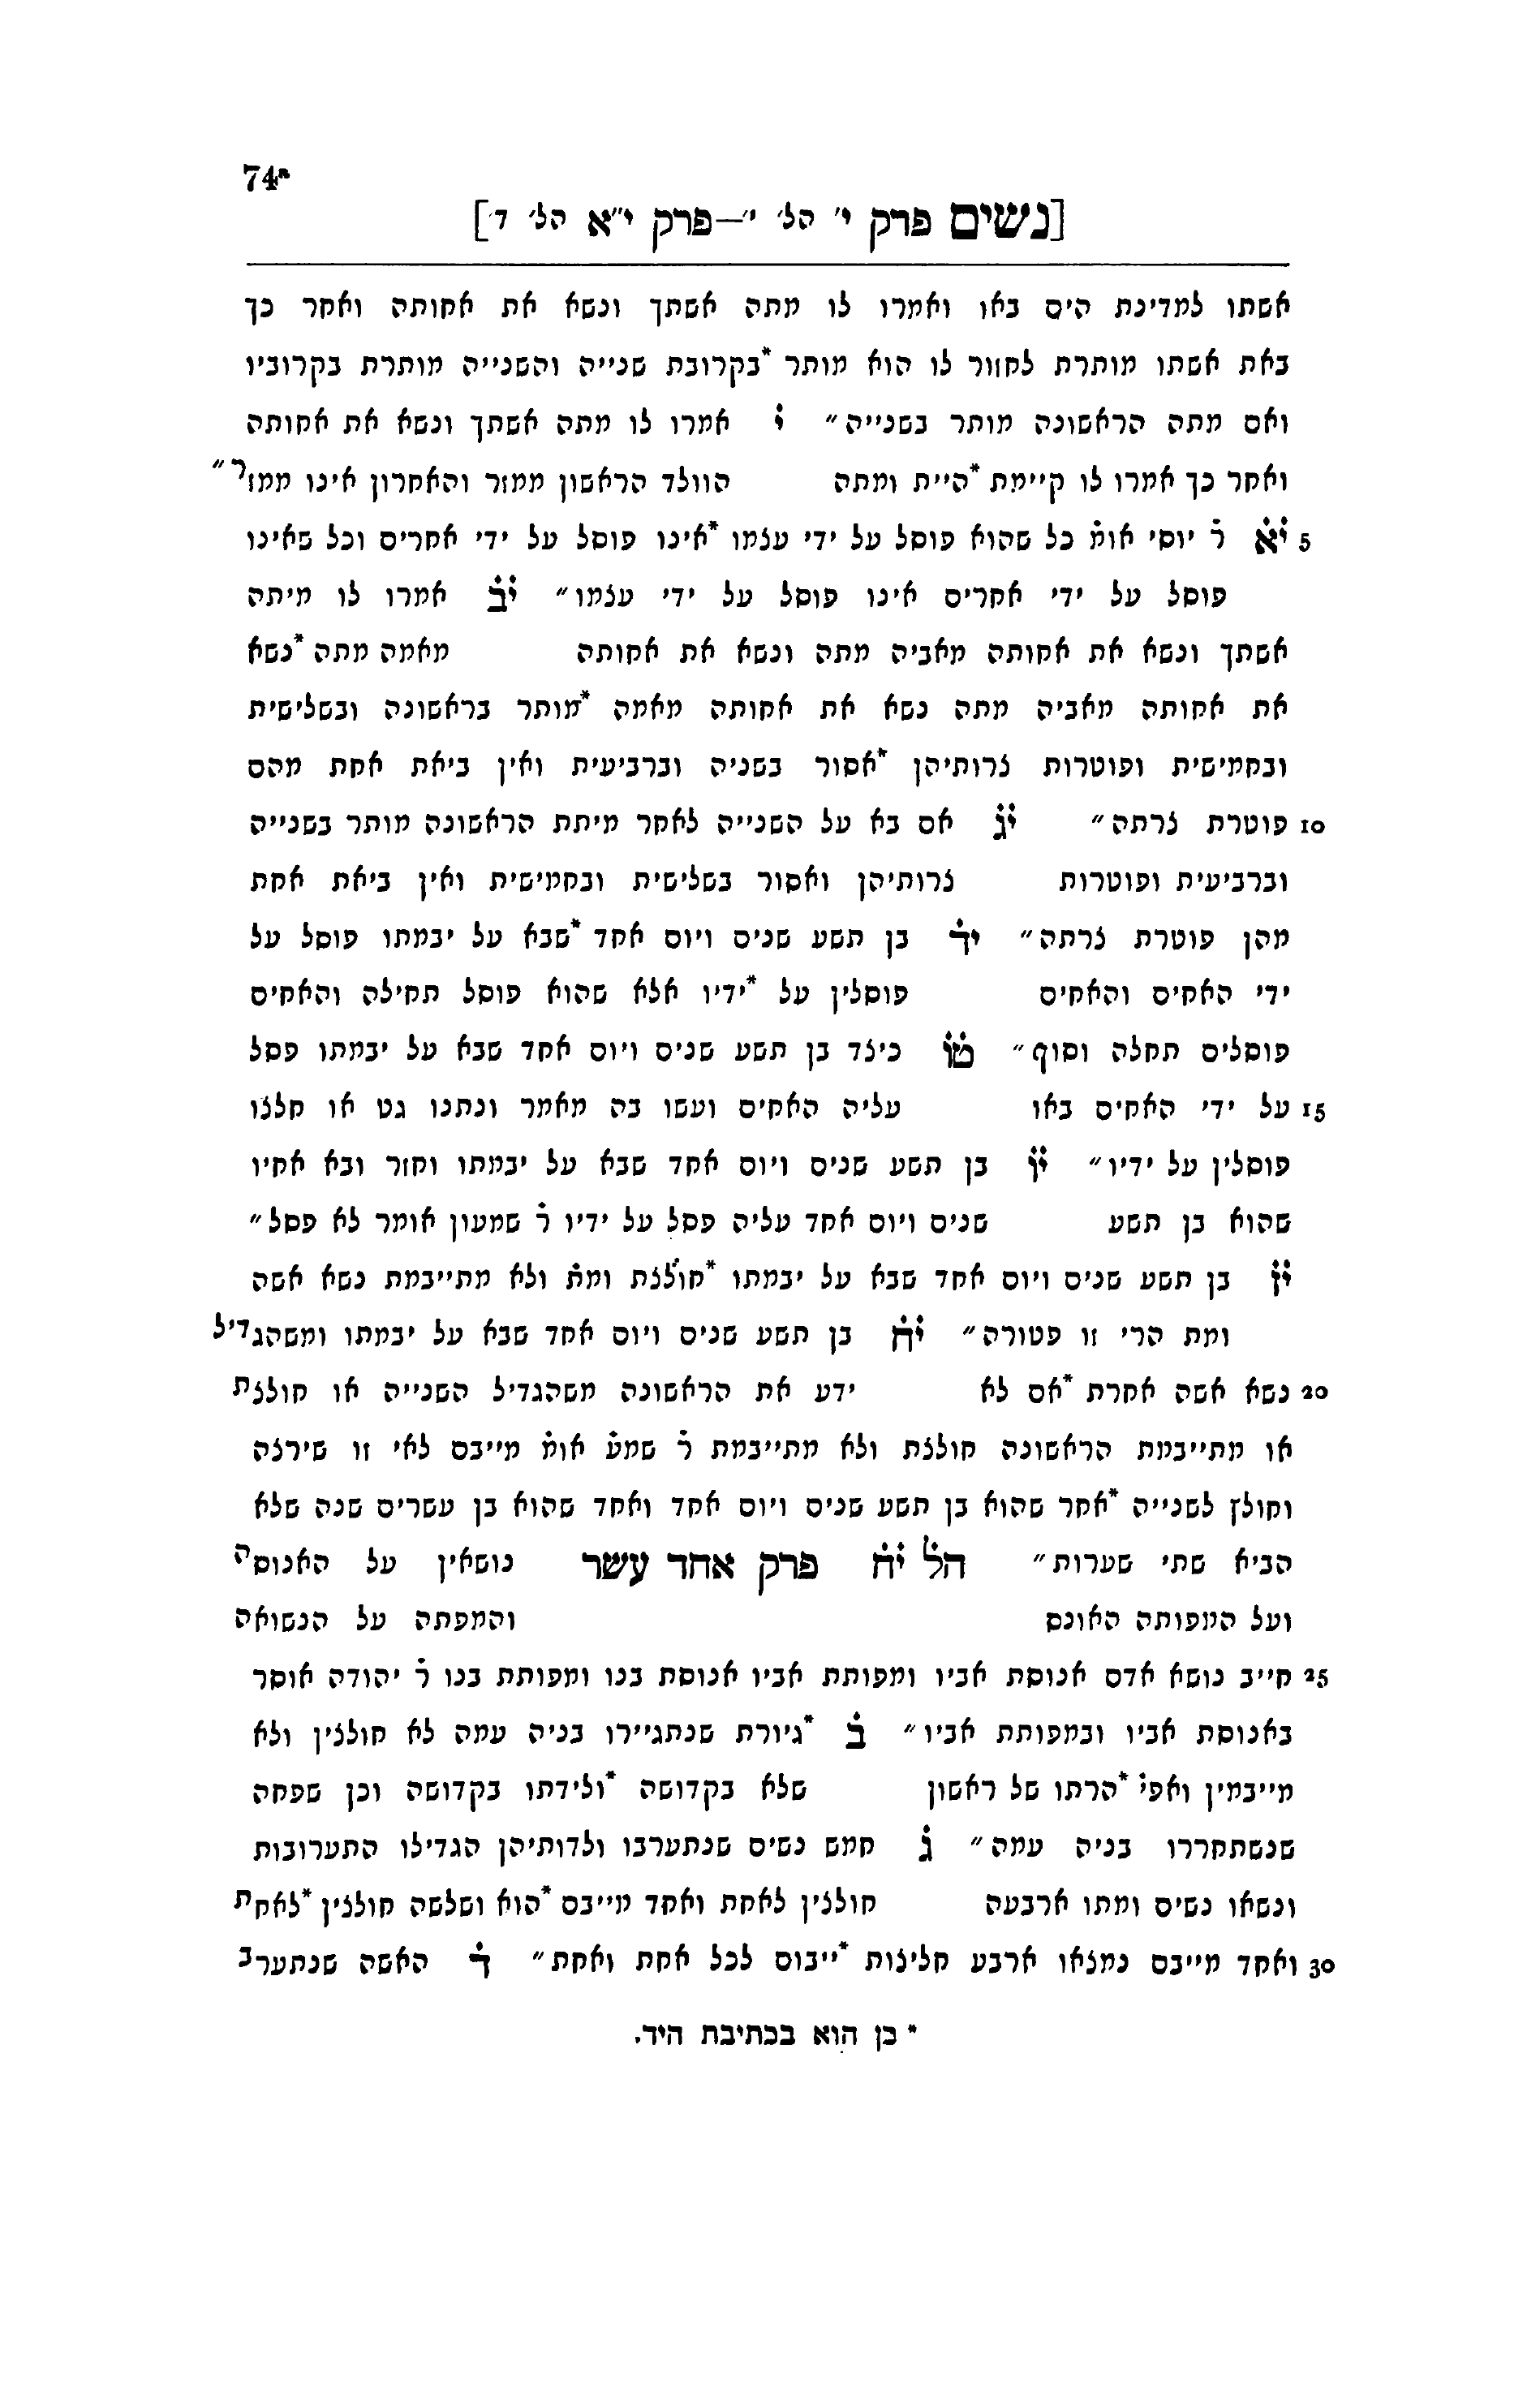 74ª
[נשים פרק י׳ הל׳ י׳—פרק י״א הל׳ ד׳]
אשתו למדינת הים באו ואמרו לו מתה אשתך ונשא את אחותה ואחר כך
באת אשתו מותרת לחזור לו הוא מותר *בקרובת שנייה והשנייה מותרת בקרוביו
ואם מתה הראשונה מותר בשנייה״ י̇ אמרו לו מתה אשתך ונשא את אחותה
ואחר כך אמרו לו קיימת *היית ומתה הוולד הראשון ממזר והאחרון אינו ממזר״
5 י̇א̇ ר̇ יוסי אומ̇ כל שהוא פוסל על ידי עצמו *אינו פוסל על ידי אחרים וכל שאינו
פוסל על ידי אחרים אינו פוסל על ידי עצמו״ י̇ב̇ אמרו לו מיתה
אשתך ונשא את אחותה מאביה מתה ונשא את אחותה מאמה מתה *נשא
את אחותה מאביה מתה נשא את אחותה מאמה *מותר בראשונה ובשלישית
ובחמישית ופוטרות צרותיהן *אסור בשניה וברביעית ואין ביאת אחת מהם
10 פוטרת צרתה״ י̇ג̇ אם בא על השנייה לאחר מיתת הראשונה מותר בשנייה
וברביעית ופוטרות צרותיהן ואסור בשלישית ובחמישית ואין ביאת אחת
מהן פוטרת צרתה״ יד̇ בן תשע שנים ויום אחד *שבא על יבמתו פוסל על
ידי האחים והאחים פוסלין על *ידיו אלא שהוא פוסל תחילה והאחים
פוסלים תחלה וסוף״ ט̇ו̇ כיצד בן תשע שנים ויום אחד שבא על יבמתו פסל
15 על ידי האחים באו עליה האחים ועשו בה מאמר ונתנו גט או חלצו
פוסלין על ידיו״ י̇ו̇ בן תשע שנים ויום אחד שבא על יבמתו וחזר ובא אחיו
שהוא בן תשע שנים ויום אחד עליה פסל על ידיו ר̇ שמעון אומר לא פסל״
י̇ז̇ בן תשע שנים ויום אחד שבא על יבמתו *חולצת ומת̇ ולא מתייבמת נשא אשה
ומת הרי זו פטורה״ י̇ח̇ בן תשע שנים ויום אחד שבא על יבמתו ומשהגדיל
20 נשא אשה אחרת *אם לא ידע את הראשונה משהגדיל השנייה או חולצת
או מתייבמת הראשונה חולצת ולא מתייבמת ר̇ שמע̇ אומ̇ מייבם לאי זו שירצה
וחולץ לשנייה *אחר שהוא בן תשע שנים ויום אחד ואחד שהוא בן עשרים שנה שלא
הביא שתי שערות״ הל̇ י̇ח̇ פרק אחד עשר נושאין על האנוסה
ועל המפותה האונס והמפתה על הנשואה
25 חייב נושא אדם אנוסת אביו ומפותת אביו אנוסת בנו ומפותת בנו ר̇ יהודה אוסר
באנוסת אביו ובמפותת אביו״ ב̇ *גיורת שנתגיירו בניה עמה לא חולצין ולא
מייבמין ואפי̇ *הרתו של ראשון שלא בקדושה *ולידתו בקדושה וכן שפחה
שנשתחררו בניה עמה״ ג̇ חמש נשים שנתערבו ולדותיהן הגדילו התערובות
ונשאו נשים ומתו ארבעה חולצין לאחת ואחד מייבם *הוא ושלשה חולצין *לאחת
30 ואחד מייבם נמצאו ארבע חליצות *ייבום לכל אחת ואחת״ ד̇ האשה שנתערב
* כן הוא בכתיבת היד.